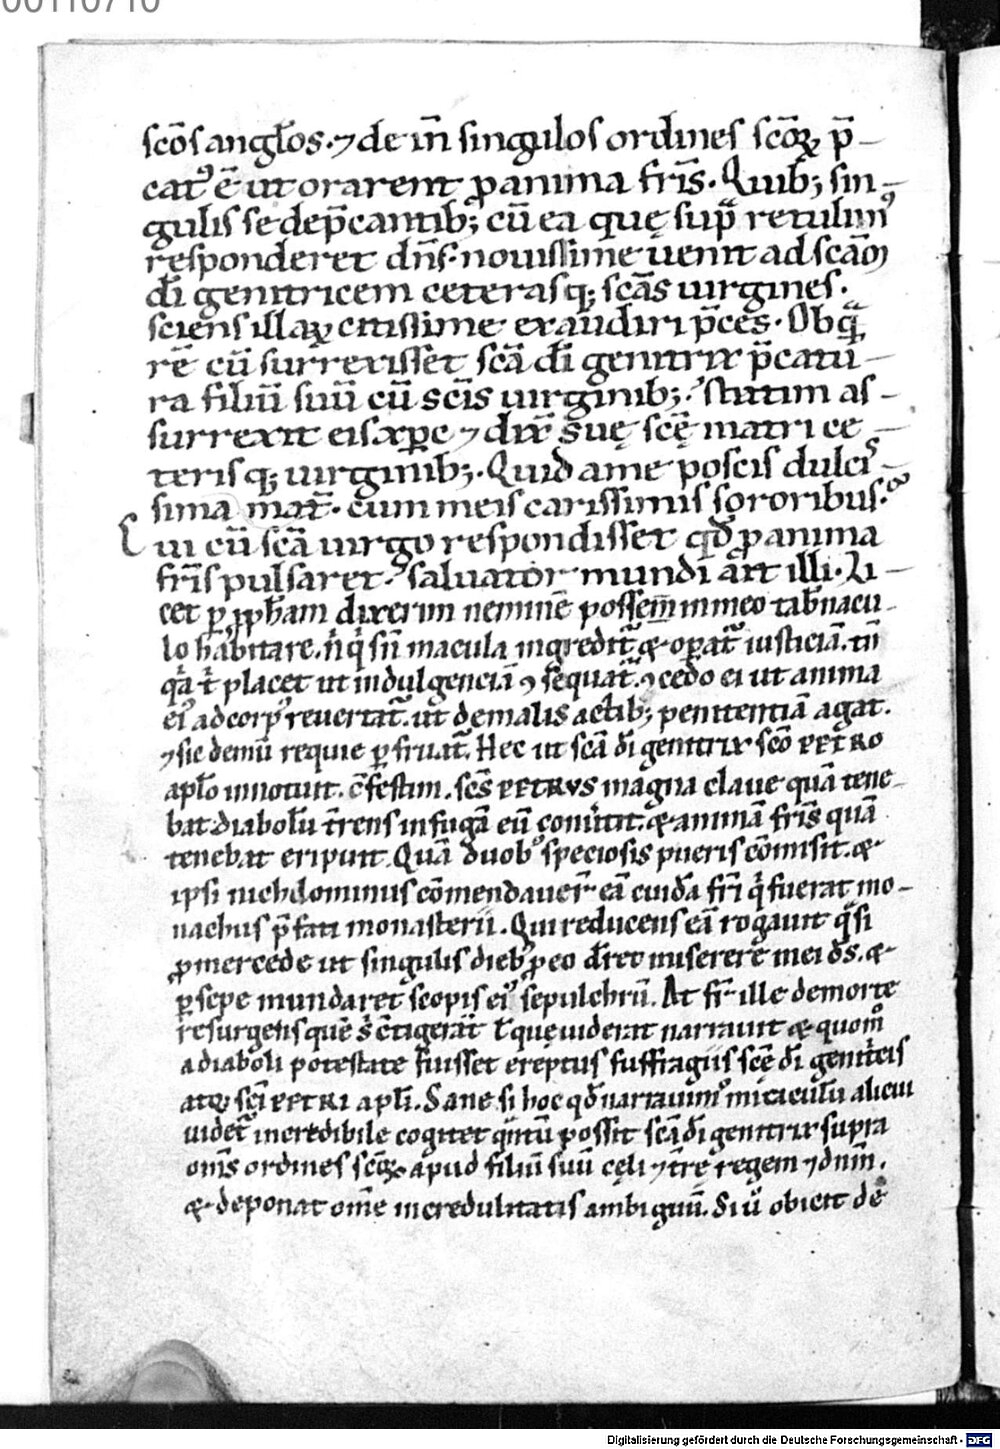 00110710
scōs angl̄os. ⁊ de in̄ singulos ordines scōꝝ p̄-
cat᷒ ē ut orarent ꝓ anima fr̄is. Quib; sin-
gulis se dep̄cantib; cū ea quę sup̄ retulim᷒
responderet dn̄s. nouissime uenit ad scām
dī genitricem ceterasq; scās uirgines.
sciens illaꝝ citissime exaudiri p̄ces. Ob qᷓ
rē cū surrexisset scā dī genitrix p̄catu-
ra filiū suū cū scīs uirginib; statim as-
surrexit eis xp̄c ⁊ dix̄ suę scę̄ matri ce-
terisq; uirginib;. Quid a me poscis dulcis-
sima mat̄. cum meis carissimis sororibus.
Cui cū scā uirgo respondisset qd̄ ꝓ anima
fr̄is pulsaret. saluator mundi ait illi. Li-
cet ꝑ ꝓph̄am dixerim neminē posse in meo tab̄nacu-
lo habitare. n̄ qͥ sn̄ macula ingredit᷑ & oꝑat᷑ iusticiā. tn̄
qͣ tͥ placet ut indulgenciā ꝯsequat᷑. ꝯcedo ei ut anima
ei᷒ ad corp᷒ reuertat᷑. ut de malis actib; penitentiā agat.
⁊ sic demū requie ꝑfruat᷑. Hec ut scā dī genitrix scō PETRO
apl̄o innotuit. ꝯfestim. scs̄ PETRVS magna claue quā tene-
bat diabolū t̄rens in fugā eū conuͥtit. & animā fr̄is quā
tenebat eripuit. Quā duob᷒ speciosis pueris cōmisit. &
ipsi nichilominus cōmendauer̄ eā cuidā fr̄i qͥ fuerat mo-
nachus p̄fati monasterii. Qui reducens eā rogauit qͣsi
ꝓ mercede ut singulis dieb᷒ ꝓ eo dic̄et miserere mei ds̄. &
ꝑsepe mundaret scopis ei᷒ sepulchrū. At fr̄ ille de morte
resurgens quę s̄ ꝯtigerāt t̄ quę uiderat narrauit & quom̊
a diaboli potestate fuisset ereptus suffragiis scę̄ dī genitͥcis
atqꝫ scī PETRI apl̄i. Sane si hoc qd̄ narrauim᷒ miraculū alicui
uidet᷑ incredibile cogitet qͣntū possit scā dī genitrix supra
om̄s ordines scōꝝ apud filiū suū cęli ⁊ t̄rę regem ⁊ dn̄m.
& deponat om̄e incredulitatis ambiguū. Si ū obicit de
Digitalisierung gefördert durch die Deutsche Forschungsgemeinschaft - DFG